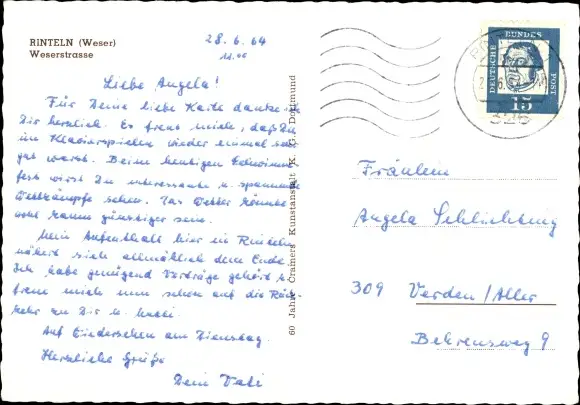 RINTELN (Weser)
Weserstrasse
28.6.64
Liebe Angela!
Für Deine liebe Karte danke ich
Dir herzlich. Es freut mich, daß Du
im Klavierspielen wieder einmal sehr
gut warst. Beim heutigen Schwimm-
fest wirst Du interessante u. spannende
Wettkämpfe sehen. Das Wetter könnte
wohl kaum günstiger sein.
Mein Aufenthalt hier in Rinteln
nähert sich allmählich dem Ende.
Ich habe genügend Vorträge gehört u.
freue mich nun schon auf die Rück-
kehr zu Dir u. Mutti.
Auf Wiedersehen am Dienstag.
Herzliche Grüße
Dein Vati
60 Jahre Cramers Kunstanstalt K. G. Dortmund
DEUTSCHE BUNDES POST
15
326
Fräulein
Angela Schlichtung
309 Verden/Aller
Behrensweg 9